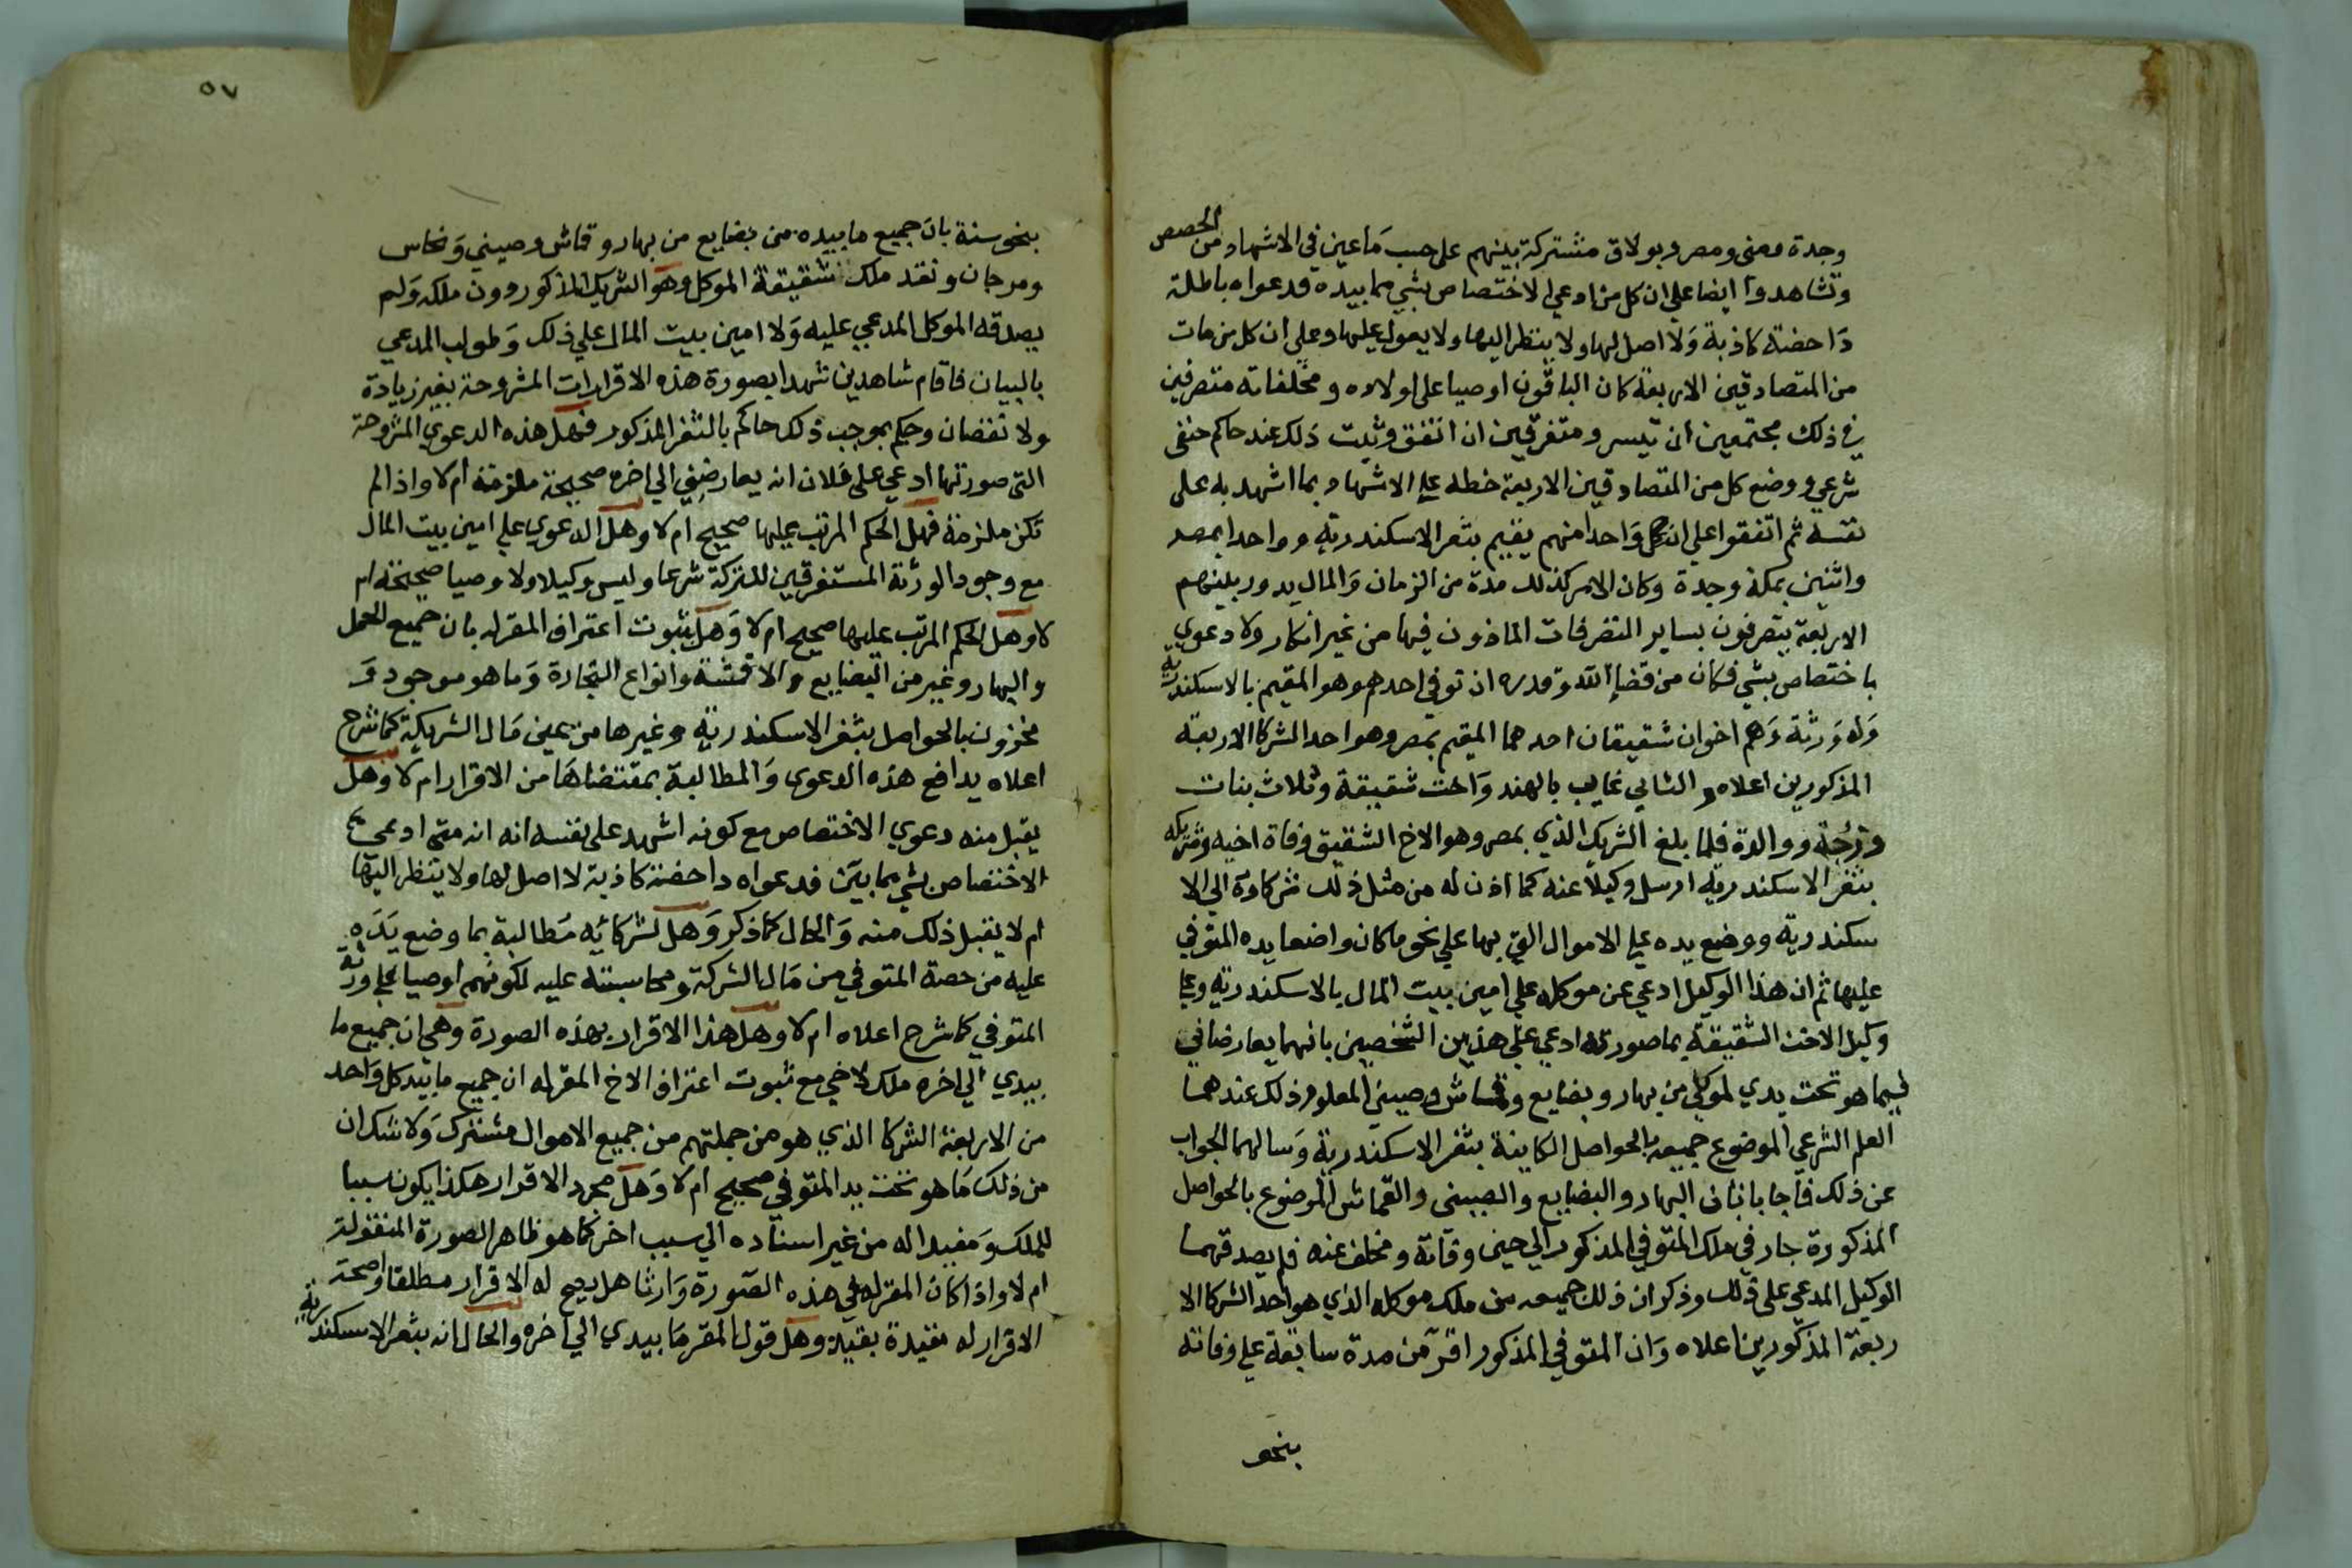 وجدة ومنى ومصر وبولاق مشتركة بينهم على حسب ما عين في الاشهاد من الحصص
وتشاهدوا ايضا على ان كل من ادعى الاختصاص بشي مما بيده فدعواه باطلة
داحضة كاذبة ولا اصل لها ولا ينتظر اليها ولا يعول عليها وعلى ان كل من مات
من المتصادقين الاربعة كان الباقون اوصيا على اولاده ومخلفاته متصرفين
في ذلك مجتمعين ان تيسر ومتفرقين ان اتفق وثبت ذلك عند حاكم حنفى
شرعي ووضع كل من المتصادقين الاربعة خطه على الاشهاد بما اشهد به على
نفسه ثم اتفقوا على ان كل واحدا منهم يقيم بثغر الاسكندرية وواحدا بمصر
واثنين بمكة وجدة وكان الامر كذلك مدة من الزمان والمال يدور بينهم
الاربعة يتصرفون بساير التصرفات الماذون فيها من غير انكار ولا دعوي
باختصاص بشي فكان من قضا الله وقدره ان توفي احدهم وهو المقيم بالاسكندرية
وله ورثة وهم اخوان شقيقان احدهما المقيم بمصر وهو احد الشركا الاربعة
المذكورين اعلاه والثاني غايب بالهند واخت شقيقة وثلاث بنات
وزوجة ووالدة فلما بلغ الشريك الذي بمصر وهو الاخ الشقيق وفاة اخيه وشريكه
بثغر الاسكندرية ارسل وكيلا عنه كما اذن له من مثل ذلك شركاوه الي الا
سكندرية ووضع يده على الاموال التي بها على نحو ما كان واضعا يده المتوفي
عليها ثم ان هذا الوكيل ادعي عن موكله علي امين بيت المال بالاسكندرية وعلى
وكيل الاخت الشقيقة بما صورته ادعي علي هذين الشخصين بانهما يعارضاني
فيما هو تحت يدي لموكلي من بهار وبضايع وقماش وصيني المعلوم ذلك عندهما
العلم الشرعي الموضوع جميعه بالحواصل الكاينة بثغر الاسكندرية وسالهما الجواب
عن ذلك فاجابا بان البهار والبضايع والصينى والقماش الموضوع بالحواصل
المذكورة جار في ملك المتوفي المذكور الي حين وفاته ومخلف عنه فلم يصدقهما
الوكيل المدعي على ذلك وذكر ان ذلك جميعه من ملك موكله الذي هو احد الشركا الا
ربعة المذكورين اعلاه وان المتوفي المذكور اقر من مدة سابقة علي وفاته
بنحو
٥٧
بنحو سنة بان جميع ما بيده من بضايع من بهار وقماش وصيني ونحاس
ومرجان ونقد ملك شقيقه الموكل وهو الشريك المذكور دون ملكه ولم
يصدقه الموكل المدعي عليه ولا امين بيت المال علي ذلك وطولب المدعي
بالبيان فاقام شاهدين شهدا بصورة هذه الاقرارات المشروحة بغير زيادة
ولا نقصان وحكم بموجب ذلك حاكم بالثغر المذكور فهل هذه الدعوي المشروحة
التى صورتها ادعي على فلان انه يعارضني الي اخره صحيحة ملزمة ام لا واذا لم
تكن ملزمة فهل الحكم المرتب عليها صحيح ام لا وهل الدعوي علي امين بيت المال
مع وجود الورثة المستغرقين للتركة شرعا وليس وكيلا ولا وصيا صحيحة ام
لا وهل الحكم المرتب عليها صحيح ام لا وهل بثبوت اعتراف المقر له بان جميع الحمل
والبهار وغير من البضايع والاقمشة وانواع التجارة وما هو موجود و
مخزون بالحواصل بثغر الاسكندرية وغيرها من عين مال الشريكية كما شرح
اعلاه يدافع هذه الدعوى والمطالبة بمقتضاها من الاقرار ام لا وهل
يقبل منه دعوي الاختصاص مع كونه اشهد على نفسه انه انه متى ادعي
الاختصاص بشي مما بين فدعواه داحضة كاذبة لا اصل لها ولا ينتظر اليها
ام لا يقبل ذلك منه والحال كما ذكر وهل لشركائه مطالبة بما وضع يده
عليه من حصة المتوفي من مال الشركة ومحاسبته عليه لكونهم اوصيا على ورثة
المتوفي كما شرح اعلاه ام لا وهل هذا الاقرار بهذه الصورة وهي ان جميع ما
بيدي الي اخره ملك لاخي مع ثبوت اعتراف الاخ المقر له ان جميع ما بيد كل واحد
من الاربعة الشركا الذي هو من جملتهم من جميع الاموال مشترك ولا شك ان
من ذلك ما هو تحت يد المتوفي صحيح ام لا وهل مجرد الاقرار هكذا يكون سببا
للملك ومفيدا له من غير اسناده الي سبب اخر كما هو ظاهر الصورة المنقولة
ام لا واذا كان المقر له في هذه الصورة وارثا هل يصح له الاقرار مطلقا او صحة
الاقرار له مقيدة بقيد وهل قول المقر ما بيدي الي اخره والحال انه بثغر الاسكندرية